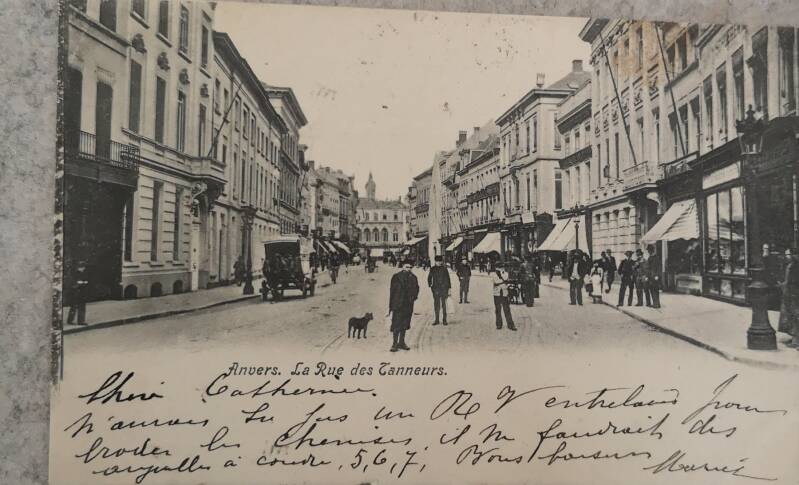 Anvers. La Rue des Tanneurs.
Chère Catherine.
N'aurais tu pas un R V entrelacés pour
broder les chemises, il me faudrait des
aiguilles à coudre, 5, 6, 7, Bons baisers Maria